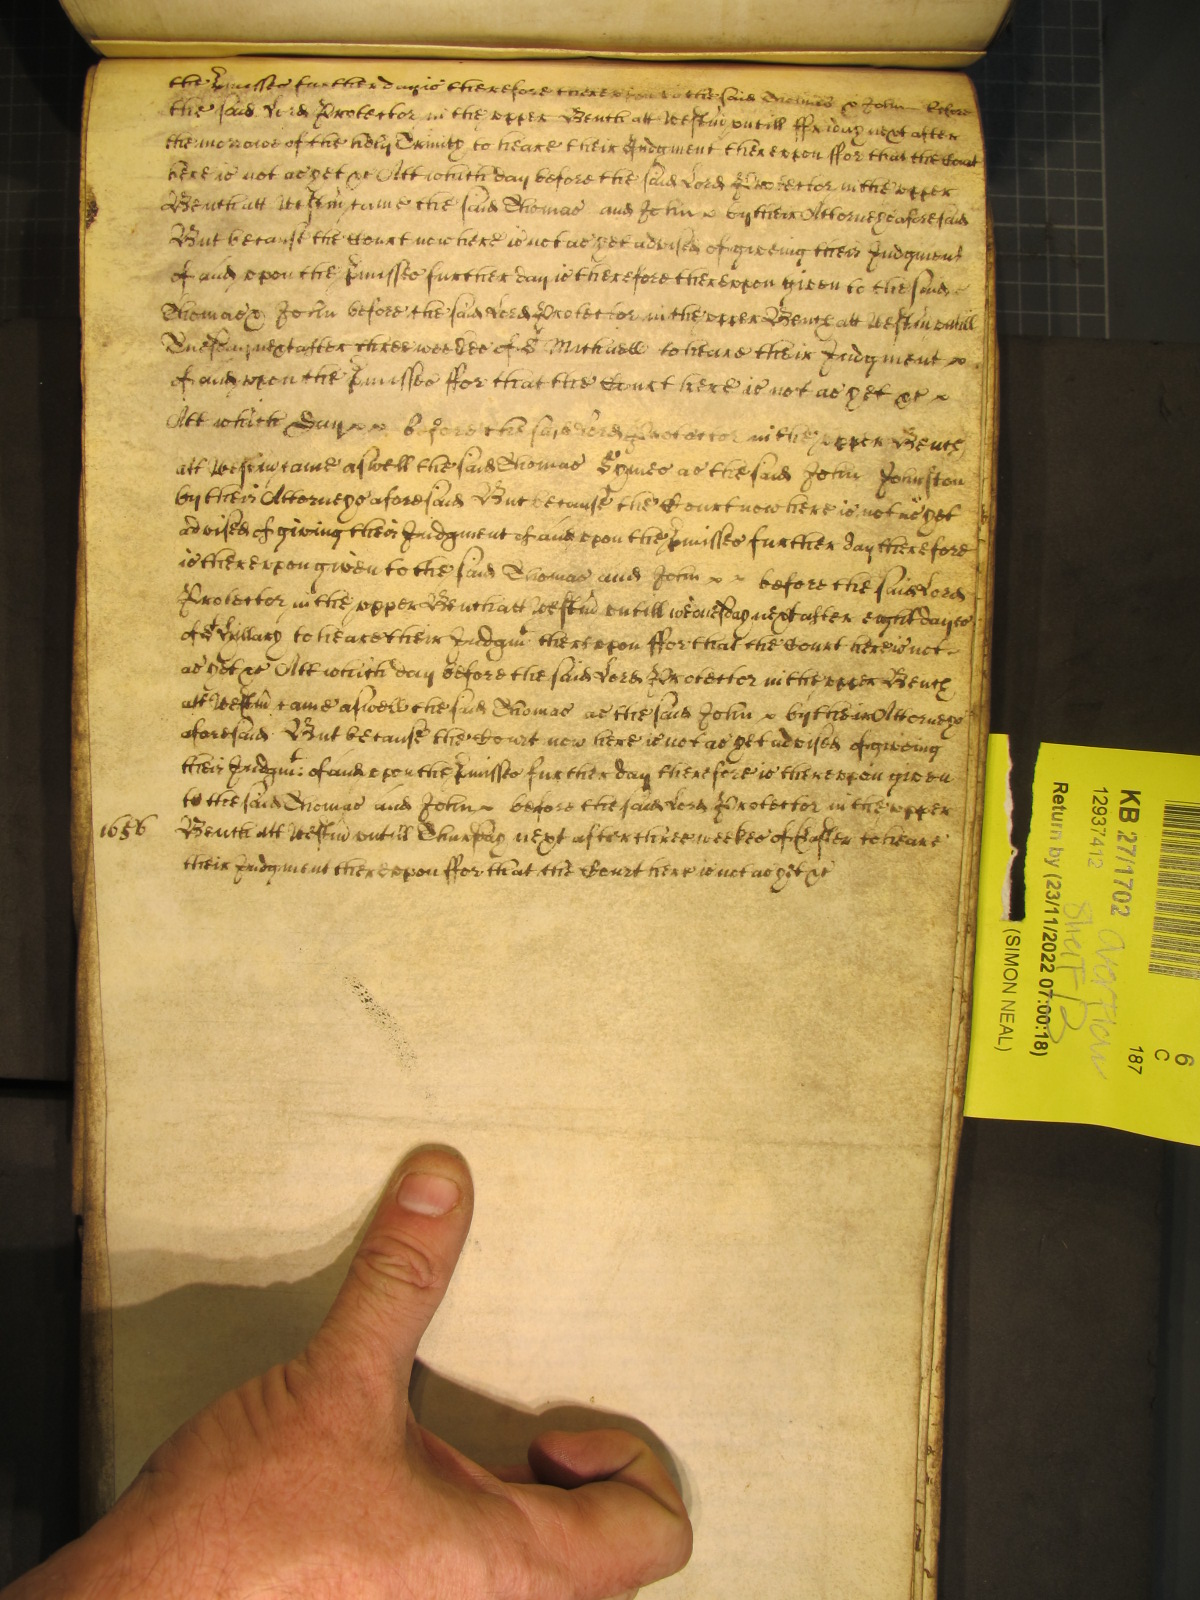 the p'misses further day is therefore thereupon to the said Thomas & John before
the said Lord Protector in the upper Bench att Westm untill ffriday next after
the morrowe of the holy Trinity to heare their Judgment thereupon ffor that the Court
here is not as yet &c Att which day before the said Lord Protector in the upper
Bench att Westm came the said Thomas and John by their Attorneys aforesaid
But because the Court now here is not as yet advised of giveing their Judgment
of and upon the p'misses further day is therefore thereupon given to the said
Thomas & John before the said Lord Protector in the upper Bench att Westm untill
Tuesday next after three weekes of St Michaell to heare their Judgment
of and upon the p'misses ffor that the Court here is not as yet &c
Att which Day before the said Lord Protector in the upper Bench
att Westm came aswell the said Thomas Symes as the said John Johnston
by their Attorneys aforesaid But because the Court now here is not as yet
advised of giving their Judgment of and upon the p'misses further day therefore
is thereupon given to the said Thomas and John before the said Lord
Protector in the upper Bench att Westm untill wednesday next after eight dayes
of St Hillary to heare their Judgmt thereupon ffor that the Court here is not
as yet &c Att which day before the said Lord Protector in the upper Bench
att Westm came aswell the said Thomas as the said John by their Attorneys
aforesaid But because the Court now here is not as yet advised of giveing
their Judgmt: of and upon the p'misses further day therefore is thereupon given
to the said Thomas and John before the said Lord Protector in the upper
1656 Bench att Westm untill Thursday next after three weekes of Easter to heare
their Judgment thereupon ffor that the Court here is not as yet &c
KB 27/1702
12937412
Return by (23/11/2022 07:00:18)
(SIMON NEAL)
overflow
Shelf 2
6
C
187